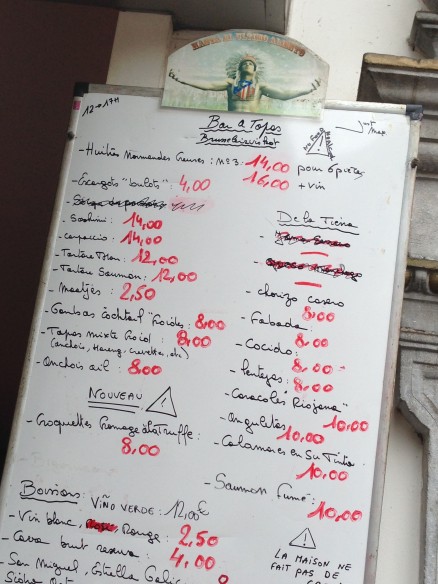 12 → 17H
Bar à Tapas
- Huîtres Normandes Creuses : n° 3 : 14,00 pour 6 pièces
16,00 + vin
- Escargots "bulots" : 4,00
- Sashimi : 14,00
- Carpaccio : 14,00
- Tartare Thon : 12,00
- Tartare Saumon : 12,00
- Maatjes : 2,50
- Gambas Cocktail "froides" : 8,00
- Tapas mixte froid : 8,00
(anchois, Hareng, crevette, etc)
- Anchois ail : 8,00
NOUVEAU
- Croquettes Fromage à la Truffe :
8,00
De la Tierra
- chorizo casero
8,00
- Fabada :
8,00
- Cocido :
8,00
- Lentejas :
8,00
- Caracoles "Riojana"
10,00
- Angulitas :
10,00
- Calamares en Su Tinta :
10,00
- Saumon Fumé :
10,00
Boissons : VIÑO VERDE : 12,00€
- Vin blanc, Rouge : 2,50
- Cava brut : 4,00
- San Miguel, Estrella Galicia
LA MAISON NE
FAIT PAS DE